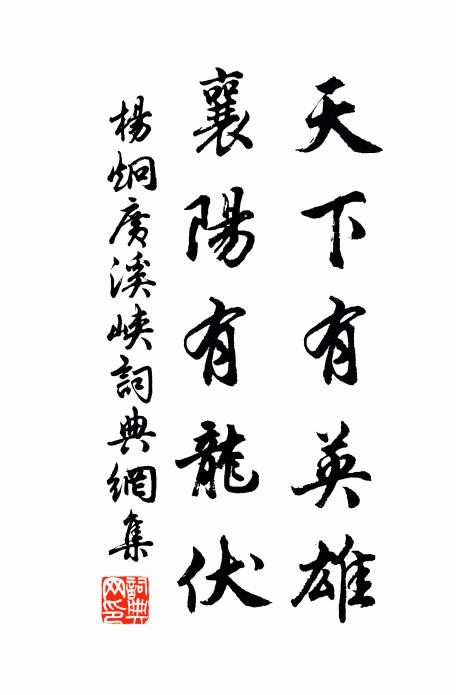 天下有英雄
襄陽有龍伏
楊炯廣溪峽詞典網集
詞典
網印